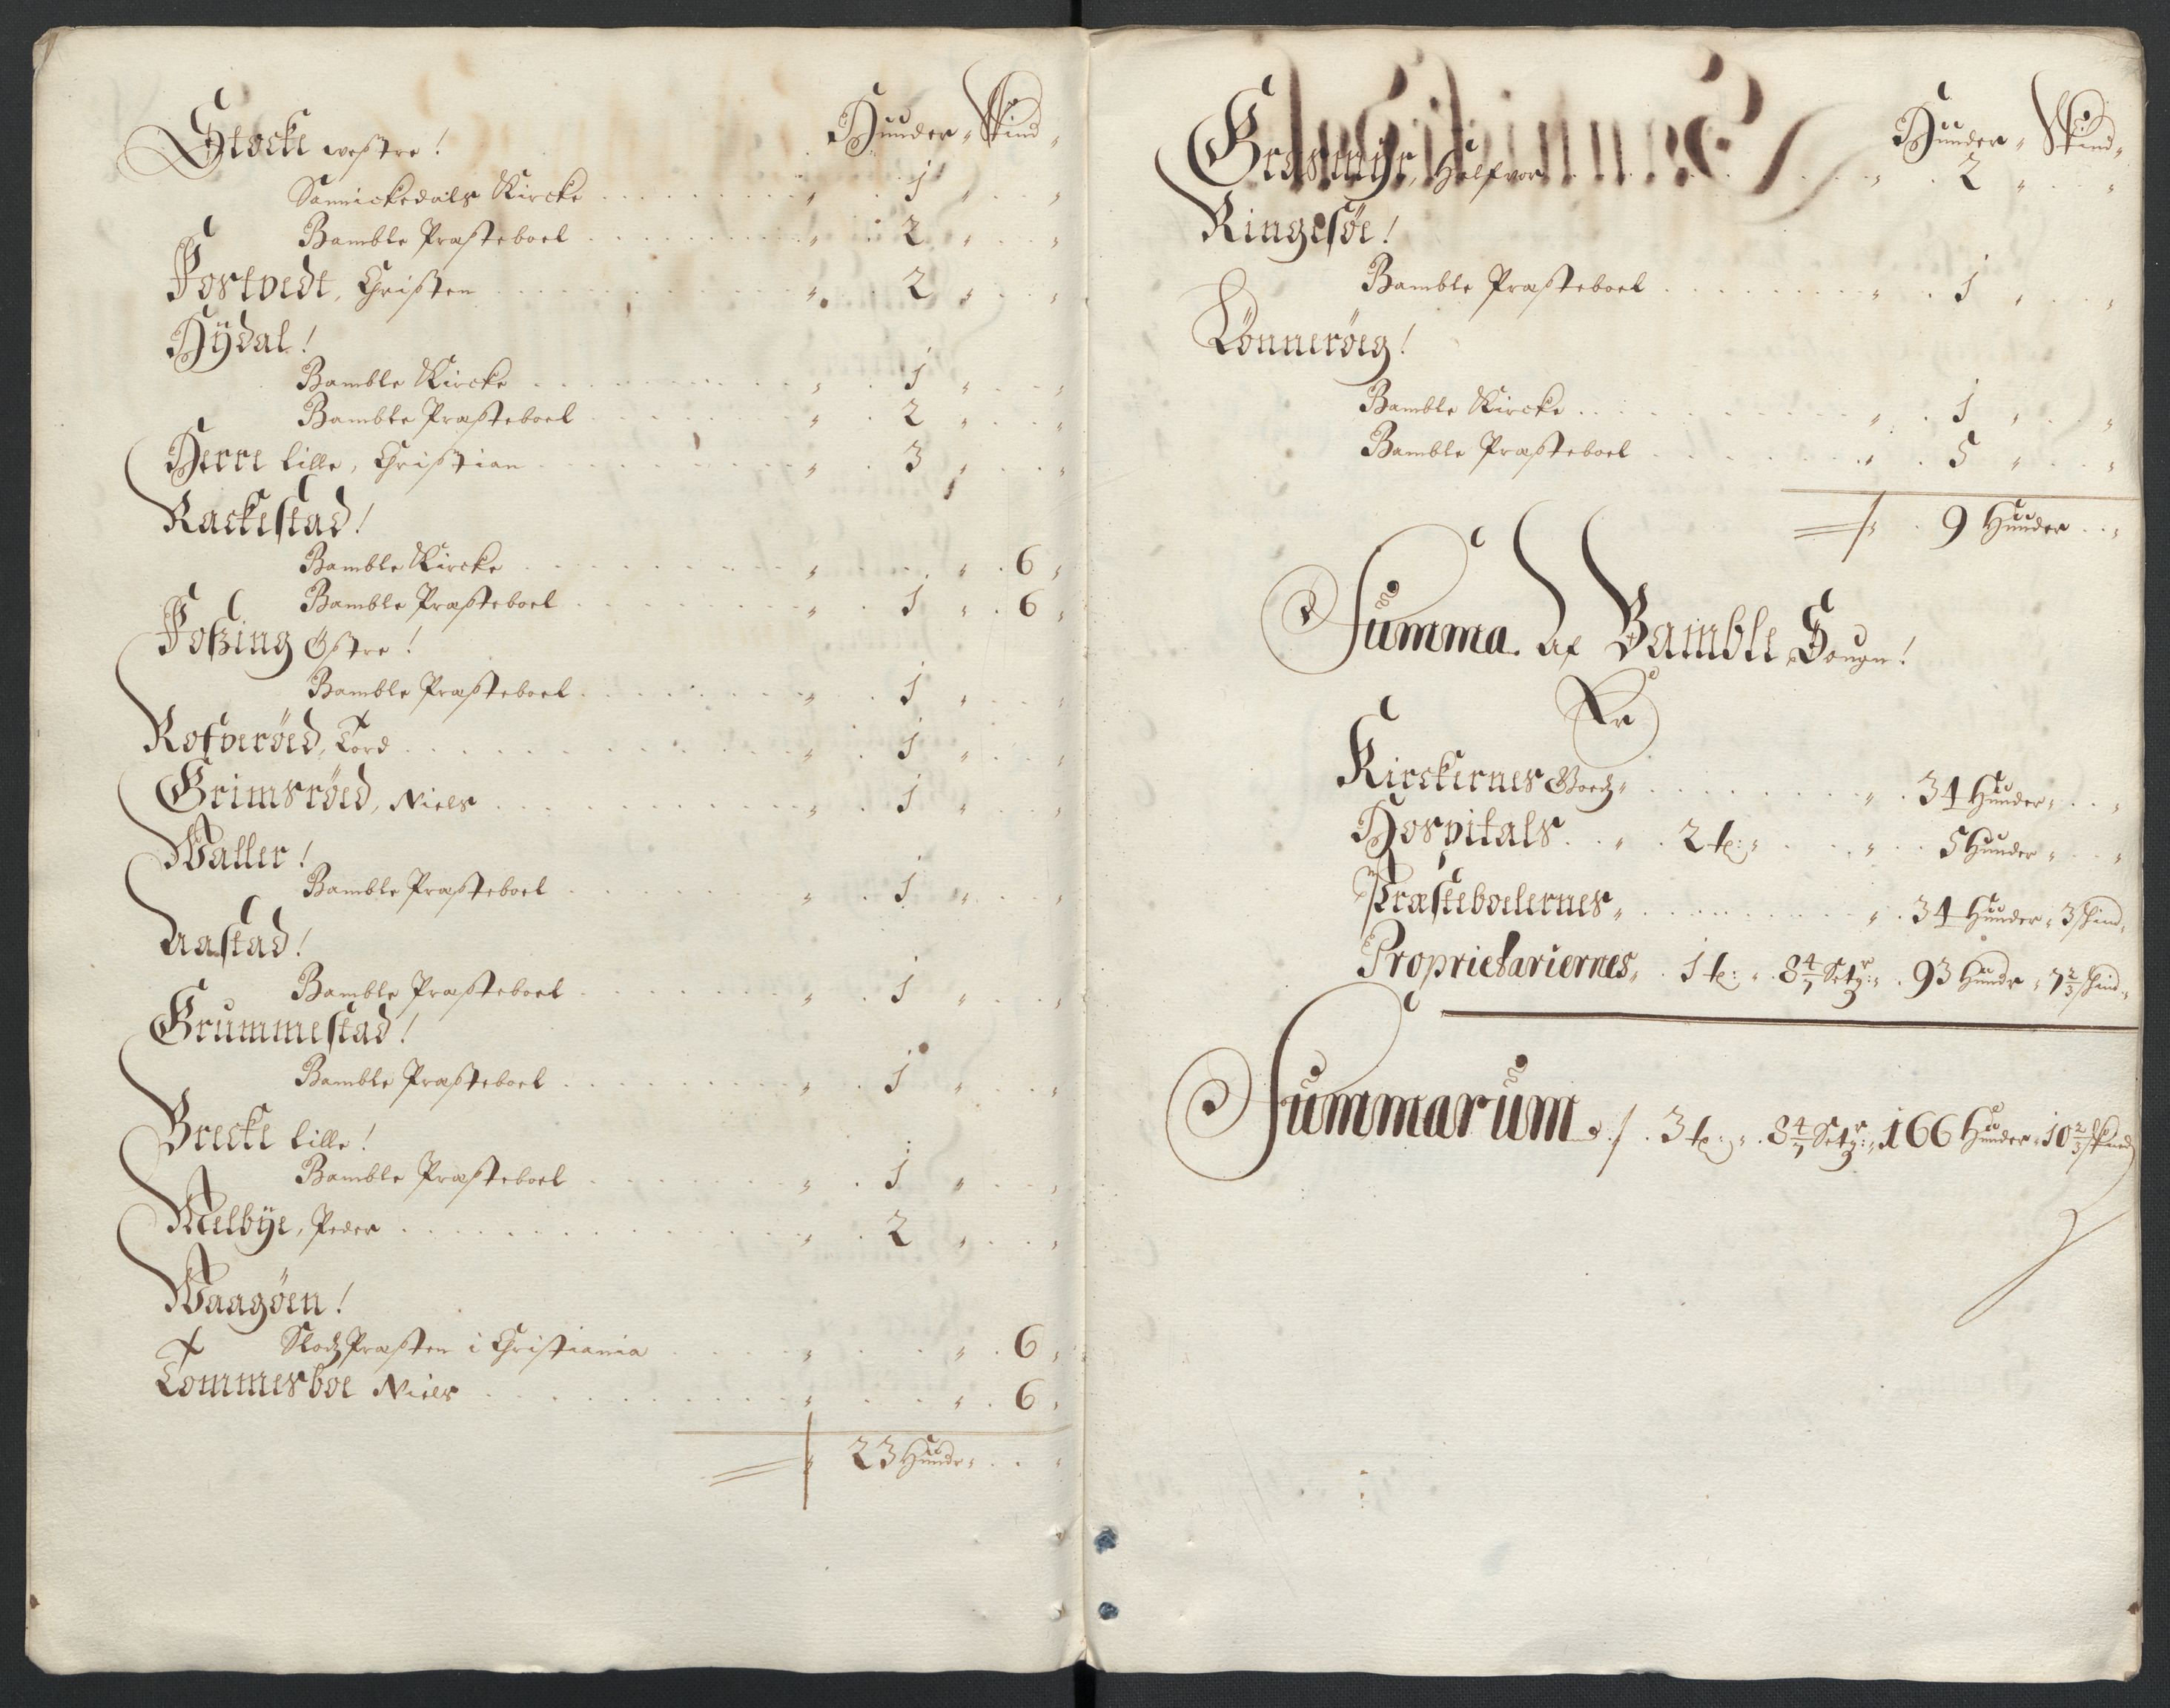 Hunder, Skind,
Stocke westre!
Sannickedals Kircke . . . 1 , . . ,
Bamble Præsteboel . . . 2 , . . ,
Fostvedt, Christen . . . 2 , . . ,
Hÿdal!
Bamble Kircke . . . 1 , . . ,
Bamble Præsteboel . . . 2 , . . ,
Herre lille, Christian . . . 3 , . . ,
Rackestad!
Bamble Kircke . . . , . 6 ,
Bamble Præsteboel . . . 1 , . 6 ,
Foßing Østre!
Bamble Præsteboel . . . 1 , . . ,
Rofverøed, Tord . . . 1 , . . ,
Grimsrøed, Niels . . . 1 , . . ,
Waller!
Bamble Præsteboel . . . 1 , . . ,
Aastad!
Bamble Præsteboel . . . 1 , . . ,
Grummestad!
Bamble Præsteboel . . . 1 , . . ,
Brecke lille!
Bamble Præsteboel . . . 1 , . . ,
Melbÿe, Peder . . . 2 , . . ,
Waagøen!
Slodz Præsten i Christiania . . . , . 6 ,
Tommesboe Niels . . . , . 6 ,
23 Hundr, . .
Hunder, Skind,
Grasmyhr, Halfvor . . . 2 , . . ,
Ringesøe!
Bamble Præsteboel . . . 1 , . . ,
Lönnerøeg!
Bamble Kircke . . . 1 , . . ,
Bamble Præsteboel . . . 5 , . . ,
9 Hunder . . ,
Summa. Af Bamble Sougn!
Er
Kirckernes Goedz, . . . 34 Hunder, . . ,
Hospitals . . , . 2 t:, . . , . . 5 Hunder, . . ,
Præsteboelernes, . . . 34 Hunder, 3 skind,
Proprietariernes, . 1 t:, . 8 4/7 Setgr:, . 93 Hundr, 7 2/3 skind,
Summarum . / . 3 t:, . 8 4/7 Setgr:, 166 Hunder, 10 2/3 skind